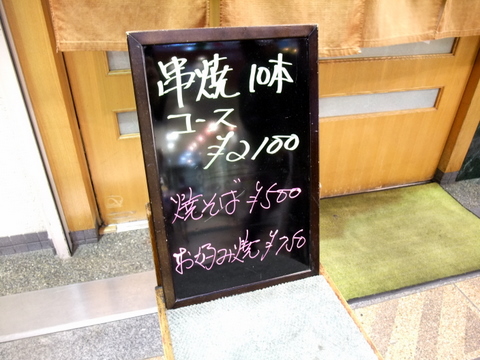 串焼 10本
コース
¥2100
焼そば ¥500
お好み焼 ¥750